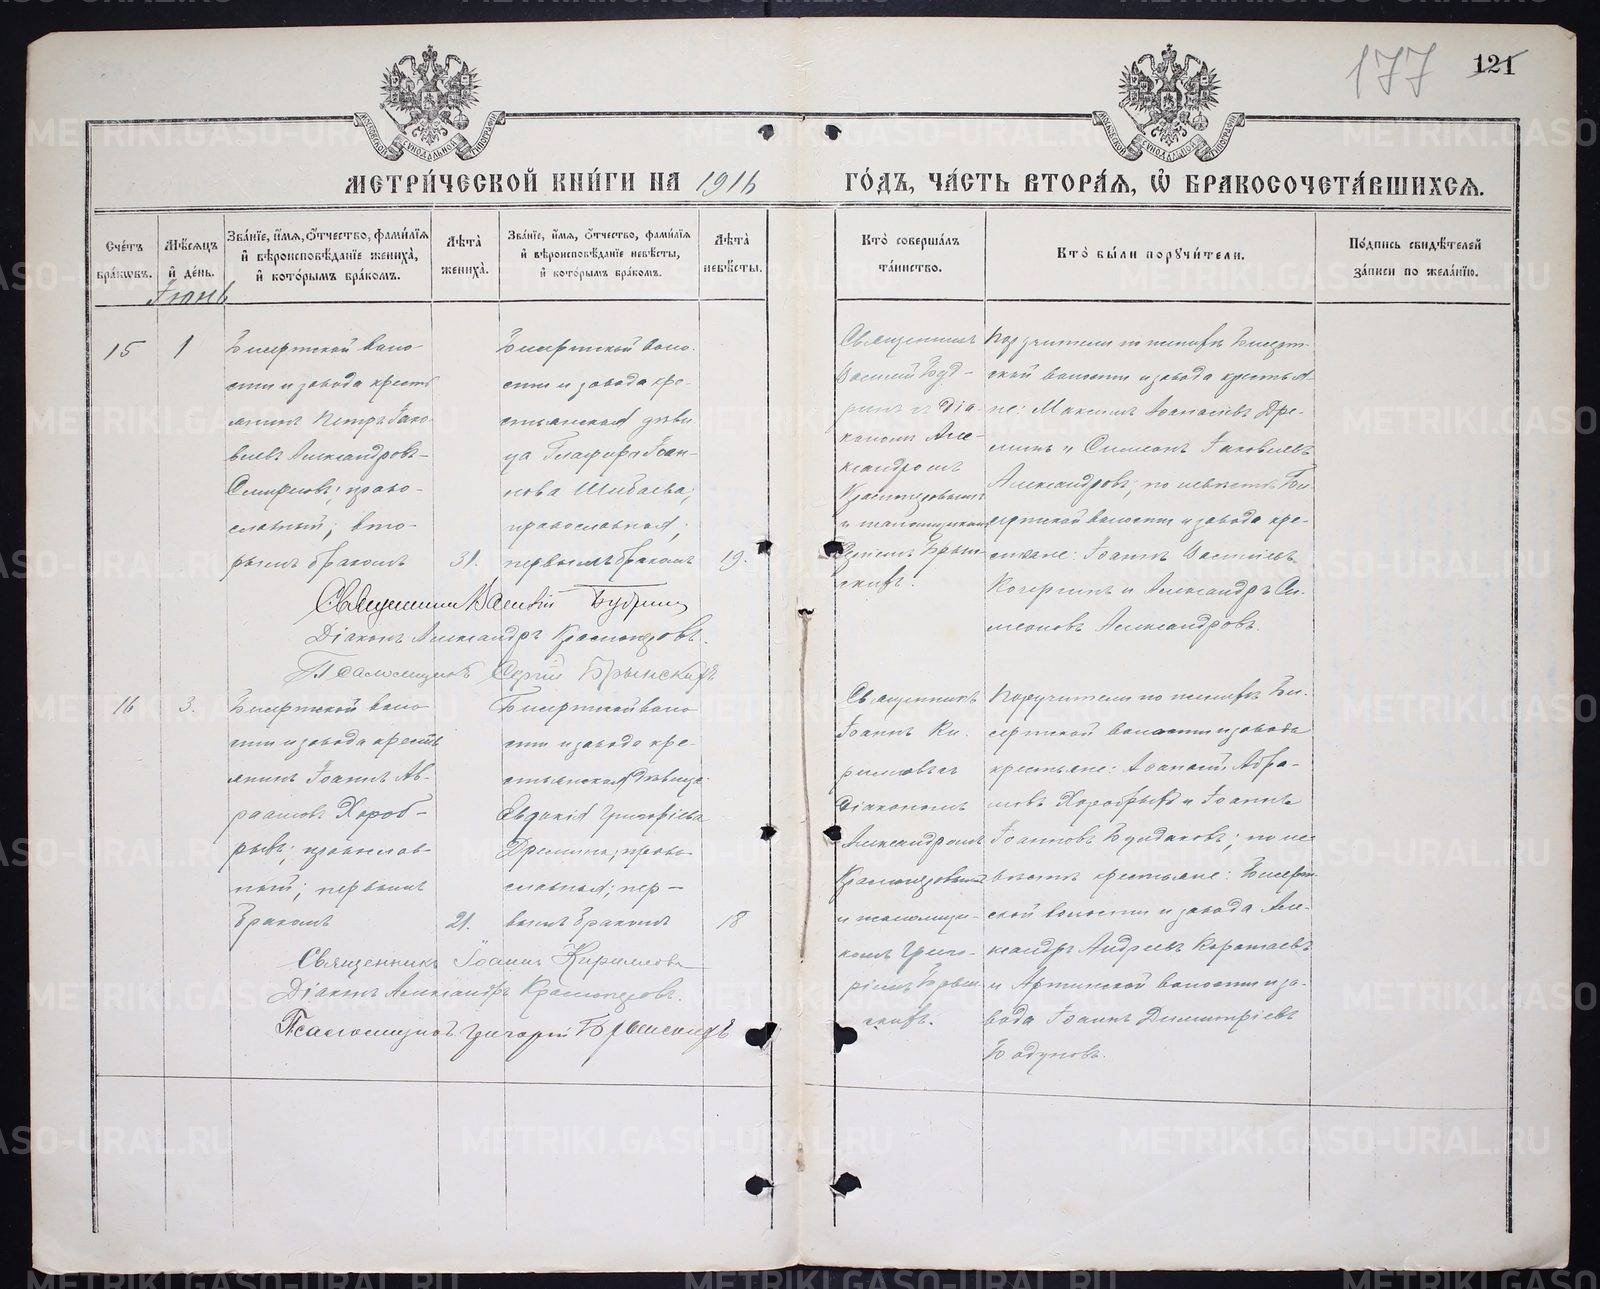 177 121
МОСКОВСКОЙ СѴНОДАЛЬНОЙ ТИПОГРАФІИ
МОСКОВСКОЙ СѴНОДАЛЬНОЙ ТИПОГРАФІИ
МЕТРИ́ЧЕСКОЙ КНИ́ГИ НА 1916 ГО́ДЪ, ЧА́СТЬ ВТОРА́Я, Ѡ҆ БРАКОСОЧЕТА́ВШИХСЯ.
Сче́тъ бра́ковъ.
Мѣ́сяцъ и҆ де́нь.
Зва́нїе, и҆́мя, ѻ҆́тчество, фами́лїя
и҆ вѣроисповѣ́данїе жениха̀,
и҆ кото́рымъ бра́комъ.
Лѣ́та жениха̀.
Зва́нїе, и҆́мя, ѻ҆́тчество, фами́лїя
и҆ вѣроисповѣ́данїе невѣ́сты,
и҆ кото́рымъ бра́комъ.
Лѣ́та невѣ́сты.
Кто̀ соверша́лъ
та́инство.
Кто̀ бы́ли поручи́тели.
По́дпись свидѣ́телей
за́писи по жела́нїю.
Іюнь
15
1
Бисертской воло-
сти и завода кресть
янинъ Петръ Іако-
влевъ Александровъ-
право-
славный; вто-
рымъ бракомъ
31.
Бисертской воло-
сти и завода кре-
стьянская дѣви
ца Глафира Іоан-
нова Шибаева;
православная;
первымъ бракомъ
19.
Священникъ
Василій Буд-
ринъ съ діа-
кономъ Але-
ксандромъ
и псаломщикомъ
Сергіемъ Брын-
скихъ.
Поручители по женихѣ Бисерт-
ской волости и завода крестья-
не: Максимъ Аѳанасіевъ Дре-
минъ и Симеонъ Іаковлевъ
Александровъ; по невѣстѣ Би-
сертской волости и завода кре-
стьяне: Іоаннъ Василіевъ
Кочергинъ и Александръ Си-
меоновъ Александровъ.
Священникъ Василій Будринъ
Діаконъ Александръ
Псаломщикъ Сергій Брынскихъ
16
3.
Бисертской воло
сти и завода кресть
янинъ Іоаннъ Ав-
раамовъ Хороб-
рыхъ; православ-
ный; первымъ
бракомъ
21.
Бисертской воло
сти и завода кре-
стьянская дѣвица
Евдокія Григоріева
Дремина; право
славная; пер-
вымъ бракомъ
18
Священникъ
Іоаннъ Ки-
рилловъ съ
діакономъ
Александромъ
и псаломщи-
комъ Григо-
ріемъ Брын-
скихъ.
Поручители по женихѣ Би-
сертской волости и завода
крестьяне: Аѳанасій Авра-
мовъ Хоробрыхъ и Іоаннъ
Іоанновъ Булдаковъ; по не
вѣстѣ крестьяне: Бисерт
ской волости и завода Але-
ксандръ Андреевъ Коротаевъ
и Артинской волости и за-
вода Іоаннъ Димитріевъ
Священникъ Іоаннъ Кирилловъ
Діаконъ Александръ
Псаломщикъ Григорій Брынскихъ
METRIKI.GASO-URAL.RU